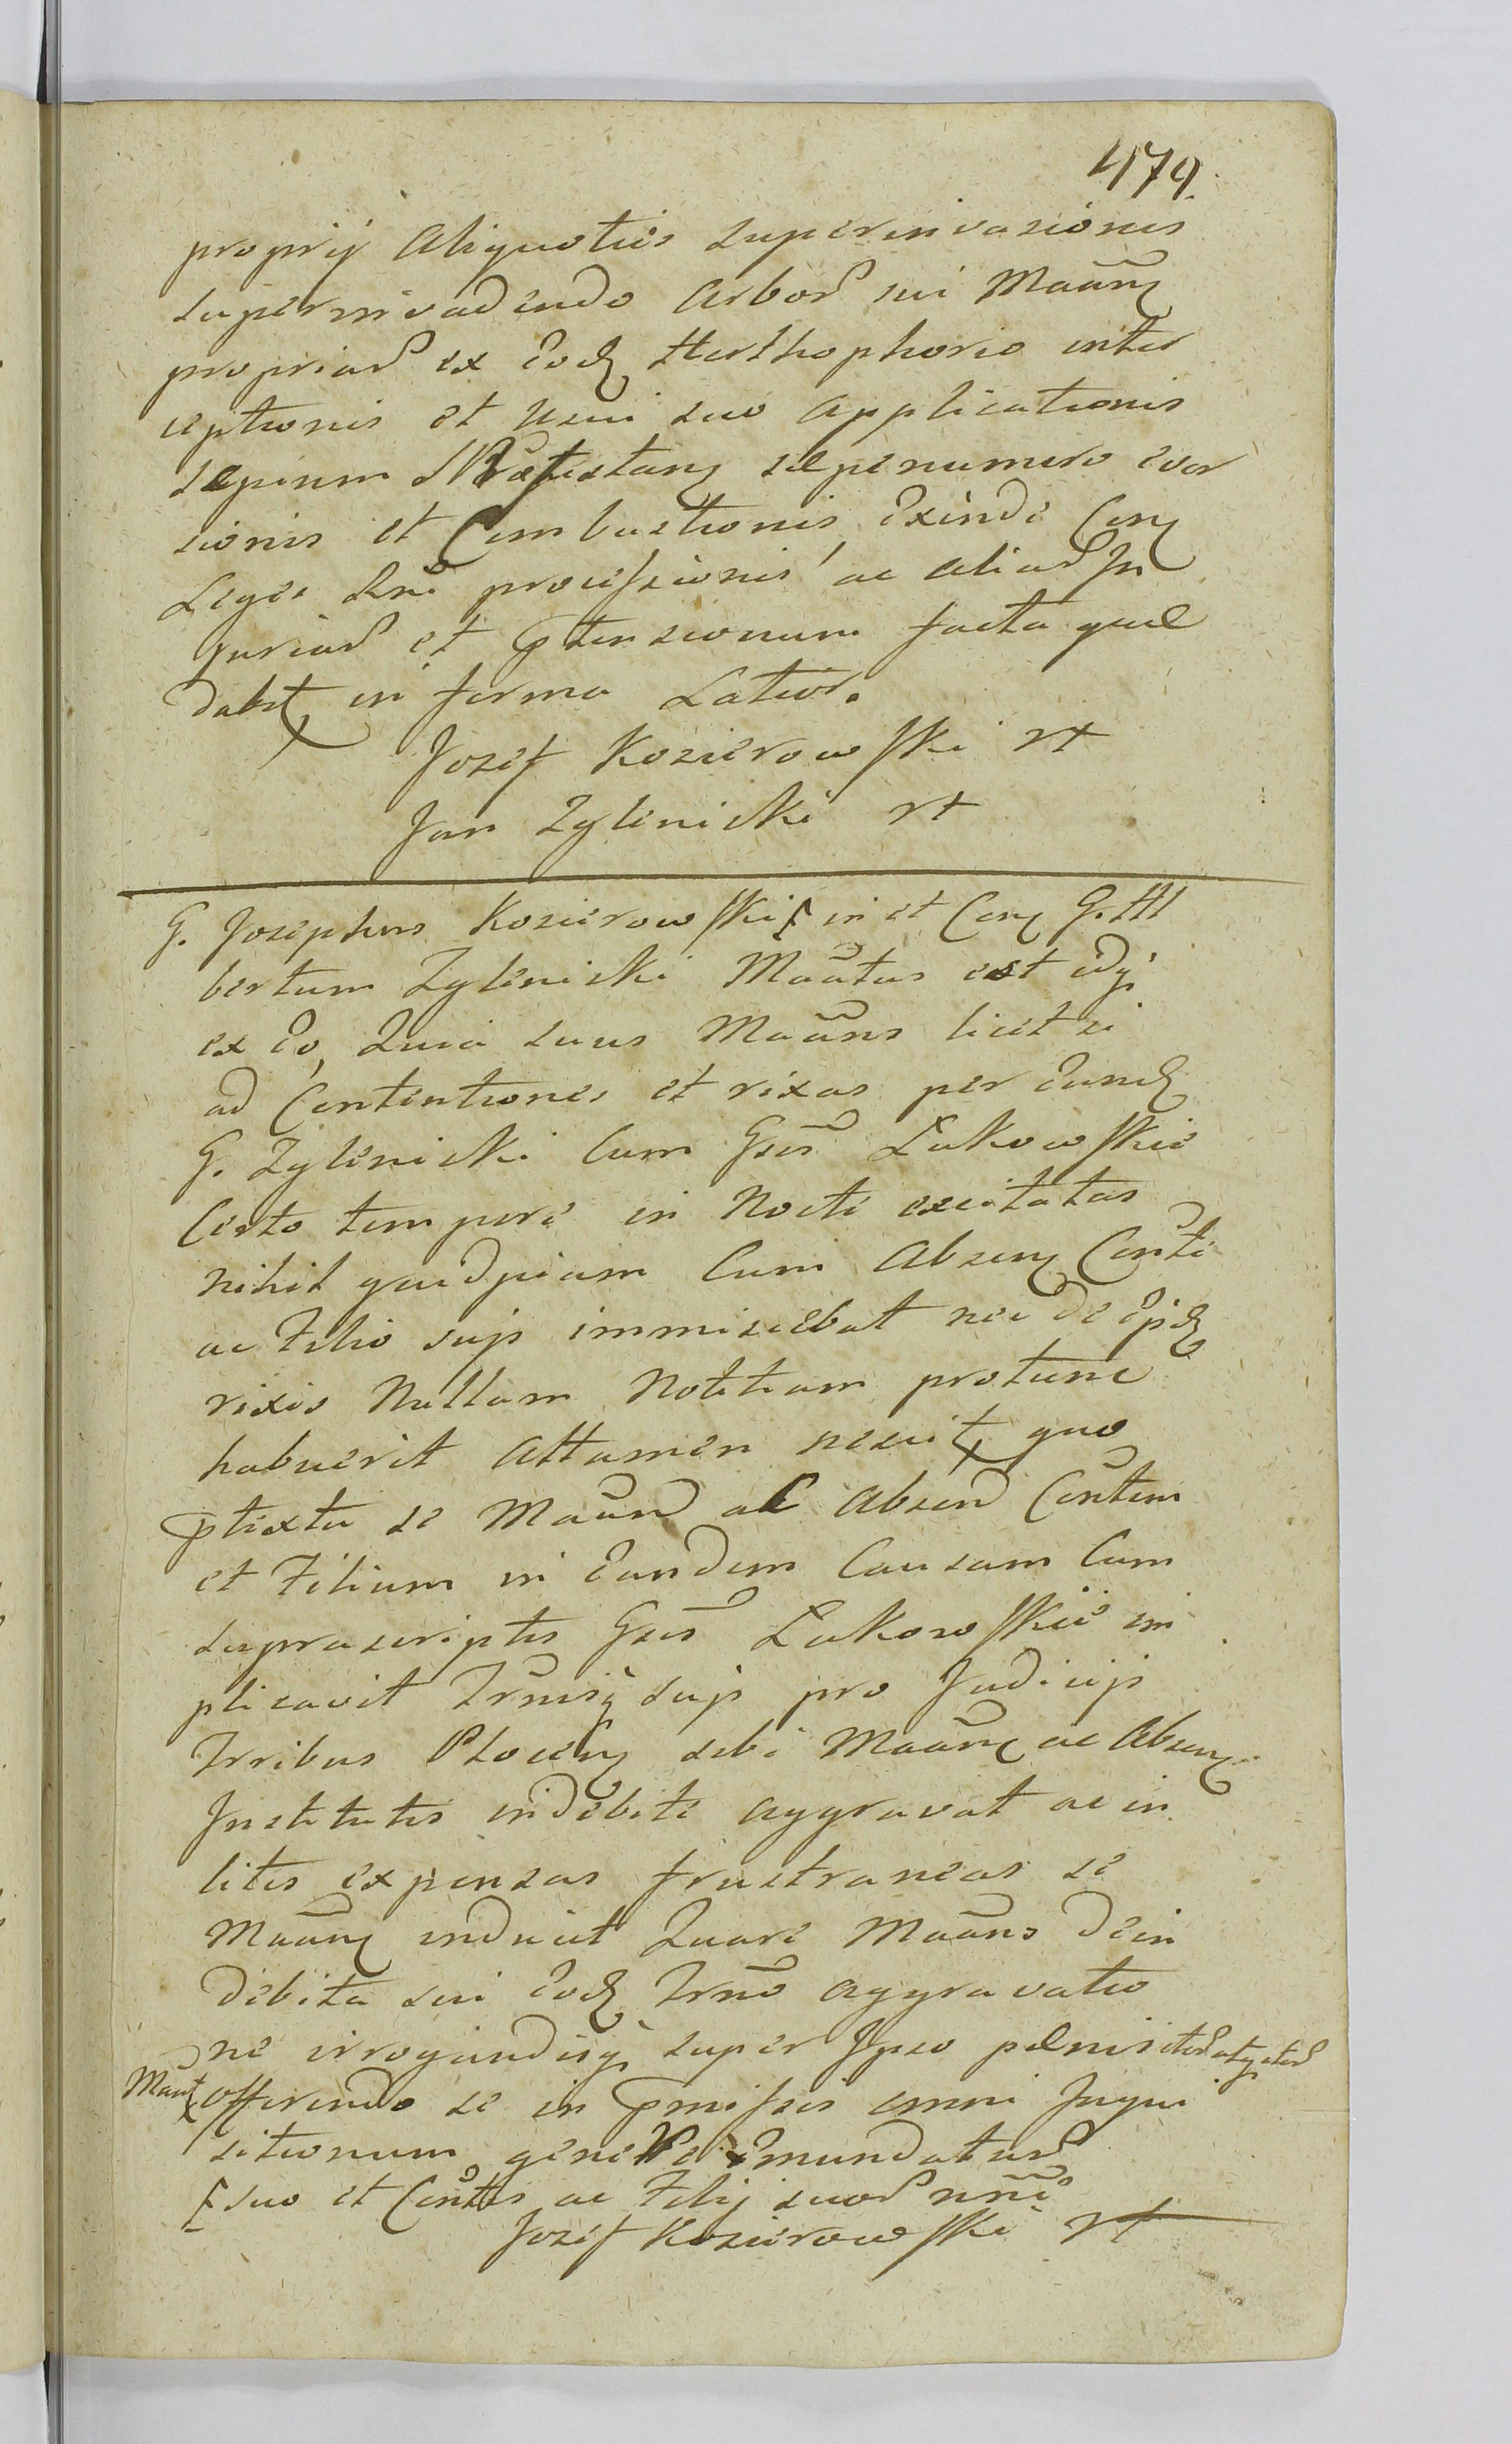 479.
proprij Aliquoties superinvasionis
superinvadendo Arbor sui Maãn
propriar ex Eod Horthophorio inter
ceptionis et Usui suo Applicationis
sepium sepenumero ever
sionis et Combustionis Exinde Con
Leges Rni processionis ac aliar In
juriar et ptensionum facta quæ
dabt in forma Latior.
Jozef Kozierowski rt
Jan Zyliniski rt
G. Josephus Kozierowski in et Con G. Al
bertum Zyliniski Maãtus est idq
ex Eo, Quia suus Maãns licet si
ad Contentiones et rixas per Eund
G. Zyliniski Cum Gsis Łukowskie
Certo tempore in Nocte excitatas
nihil quidpiam Cum Absen Conte
ac Filio sujs immiscebat nec de Ejsd
rixis Nullam Notitiam protunc
habuerit Attamen nescit quo
ptextu se Maãn ac Absen Contem
et Filium in Eandem Causam Cum
suprascriptis Gsis Łukowskie im
plicavit Trmisq sujs pro Judicijs
Trribus Plocen sibi Maãn ac Absen
Institutis indebite aggravat ac in
litis expensas frustraneas se
Maãn induit Quare Maãns de in
debita sui Eod Trno aggravatio
ne irrogandisq super Ipso pænis
Maãt offerendo se in pmissis omni Inqui
sitionum genere Emundatur
suo et Contis ac Filij suor nnẽ
Jozef Kozierowski rt